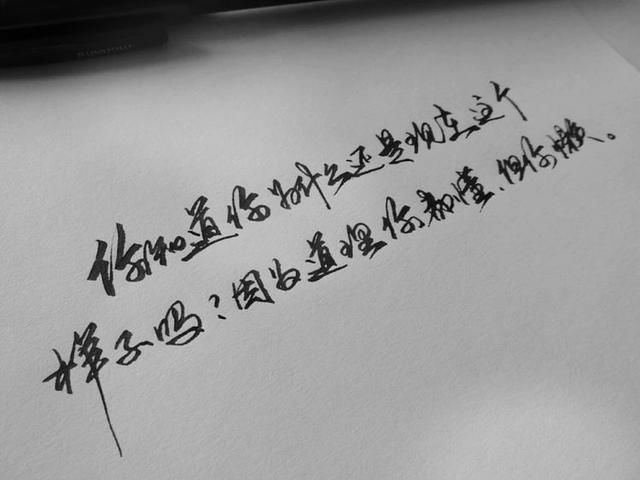 你知道你为什么还是现在这个
样子吗？因为道理你都懂、但你懒。